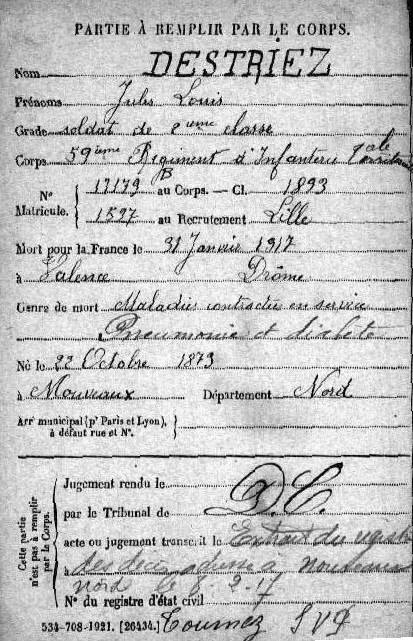 PARTIE À REMPLIR PAR LE CORPS.
Nom DESTRIEZ
Prénoms Jules Louis
Grade soldat de 2ème classe
Corps 59ème Régiment d'Infanterie Tale
N° Matricule. 17179 B au Corps. — Cl. 1893
1527 au Recrutement Lille
Mort pour la France le 31 Janvier 1917
à Valence Drôme
Genre de mort Maladies contractée en service
Pneumonie et diabète
Né le 22 Octobre 1873
à Mouvaux Département Nord
Arr¹ municipal (p' Paris et Lyon),
à défaut rue et N°.
Cette partie n'est pas à remplir par le Corps.
Jugement rendu le
par le Tribunal de D.C.
acte ou jugement transcrit le Extrait du
à des décès
Nord
N° du registre d'état civil
534-708-1921. [26434.]